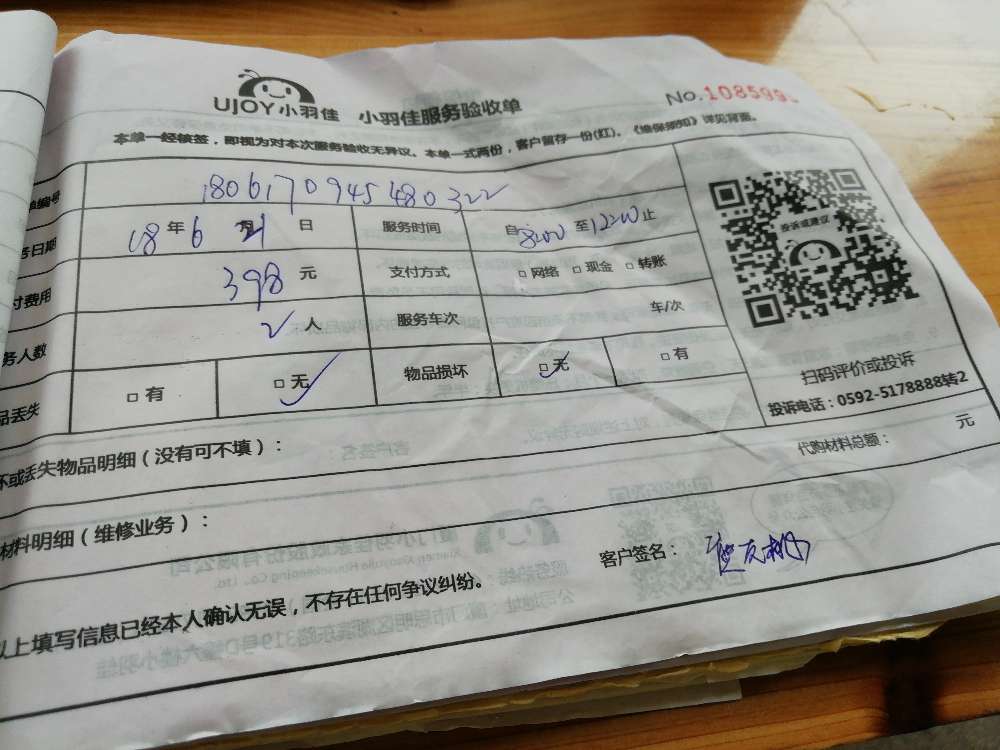 UJOY小羽佳 小羽佳服务验收单 No.108599
本单一经核签，即视为对本次服务验收无异议。本单一式两份，客户留存一份(红)。《维保须知》详见背面。
单编号 180617094548032
务日期 18年6月21日 服务时间 自8:00至12:00止
付费用 398元 支付方式 □网络 □现金 □转账
务人数 2人 服务车次 车/次
品丢失 □有 □无 物品损坏 □无 □有
投诉或建议
扫码评价或投诉
投诉电话：0592-5178888转2
坏或丢失物品明细（没有可不填）：
代购材料总额： 元
材料明细（维修业务）：
客户签名：
以上填写信息已经本人确认无误，不存在任何争议纠纷。